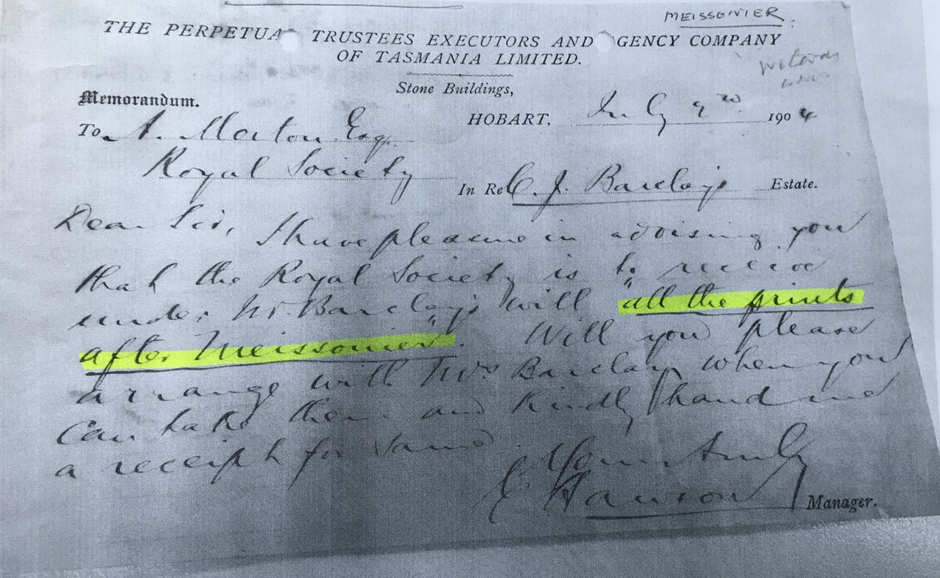 MEISSONIER.
THE PERPETUA TRUSTEES EXECUTORS AND GENCY COMPANY
OF TASMANIA LIMITED.
Stone Buildings,
Memorandum.
To A. Morton Esq.
HOBART, July 1904
Royal Society
In Re C. J. Barclay's Estate.
Dear Sir, I have pleasure in advising you
that the Royal Society is to receive
under Mr Barclay's will "all the prints
after Meissonier". Will you please
arrange with Mrs Barclay when you
can take them and kindly hand me
a receipt for same
Yours truly
Manager.